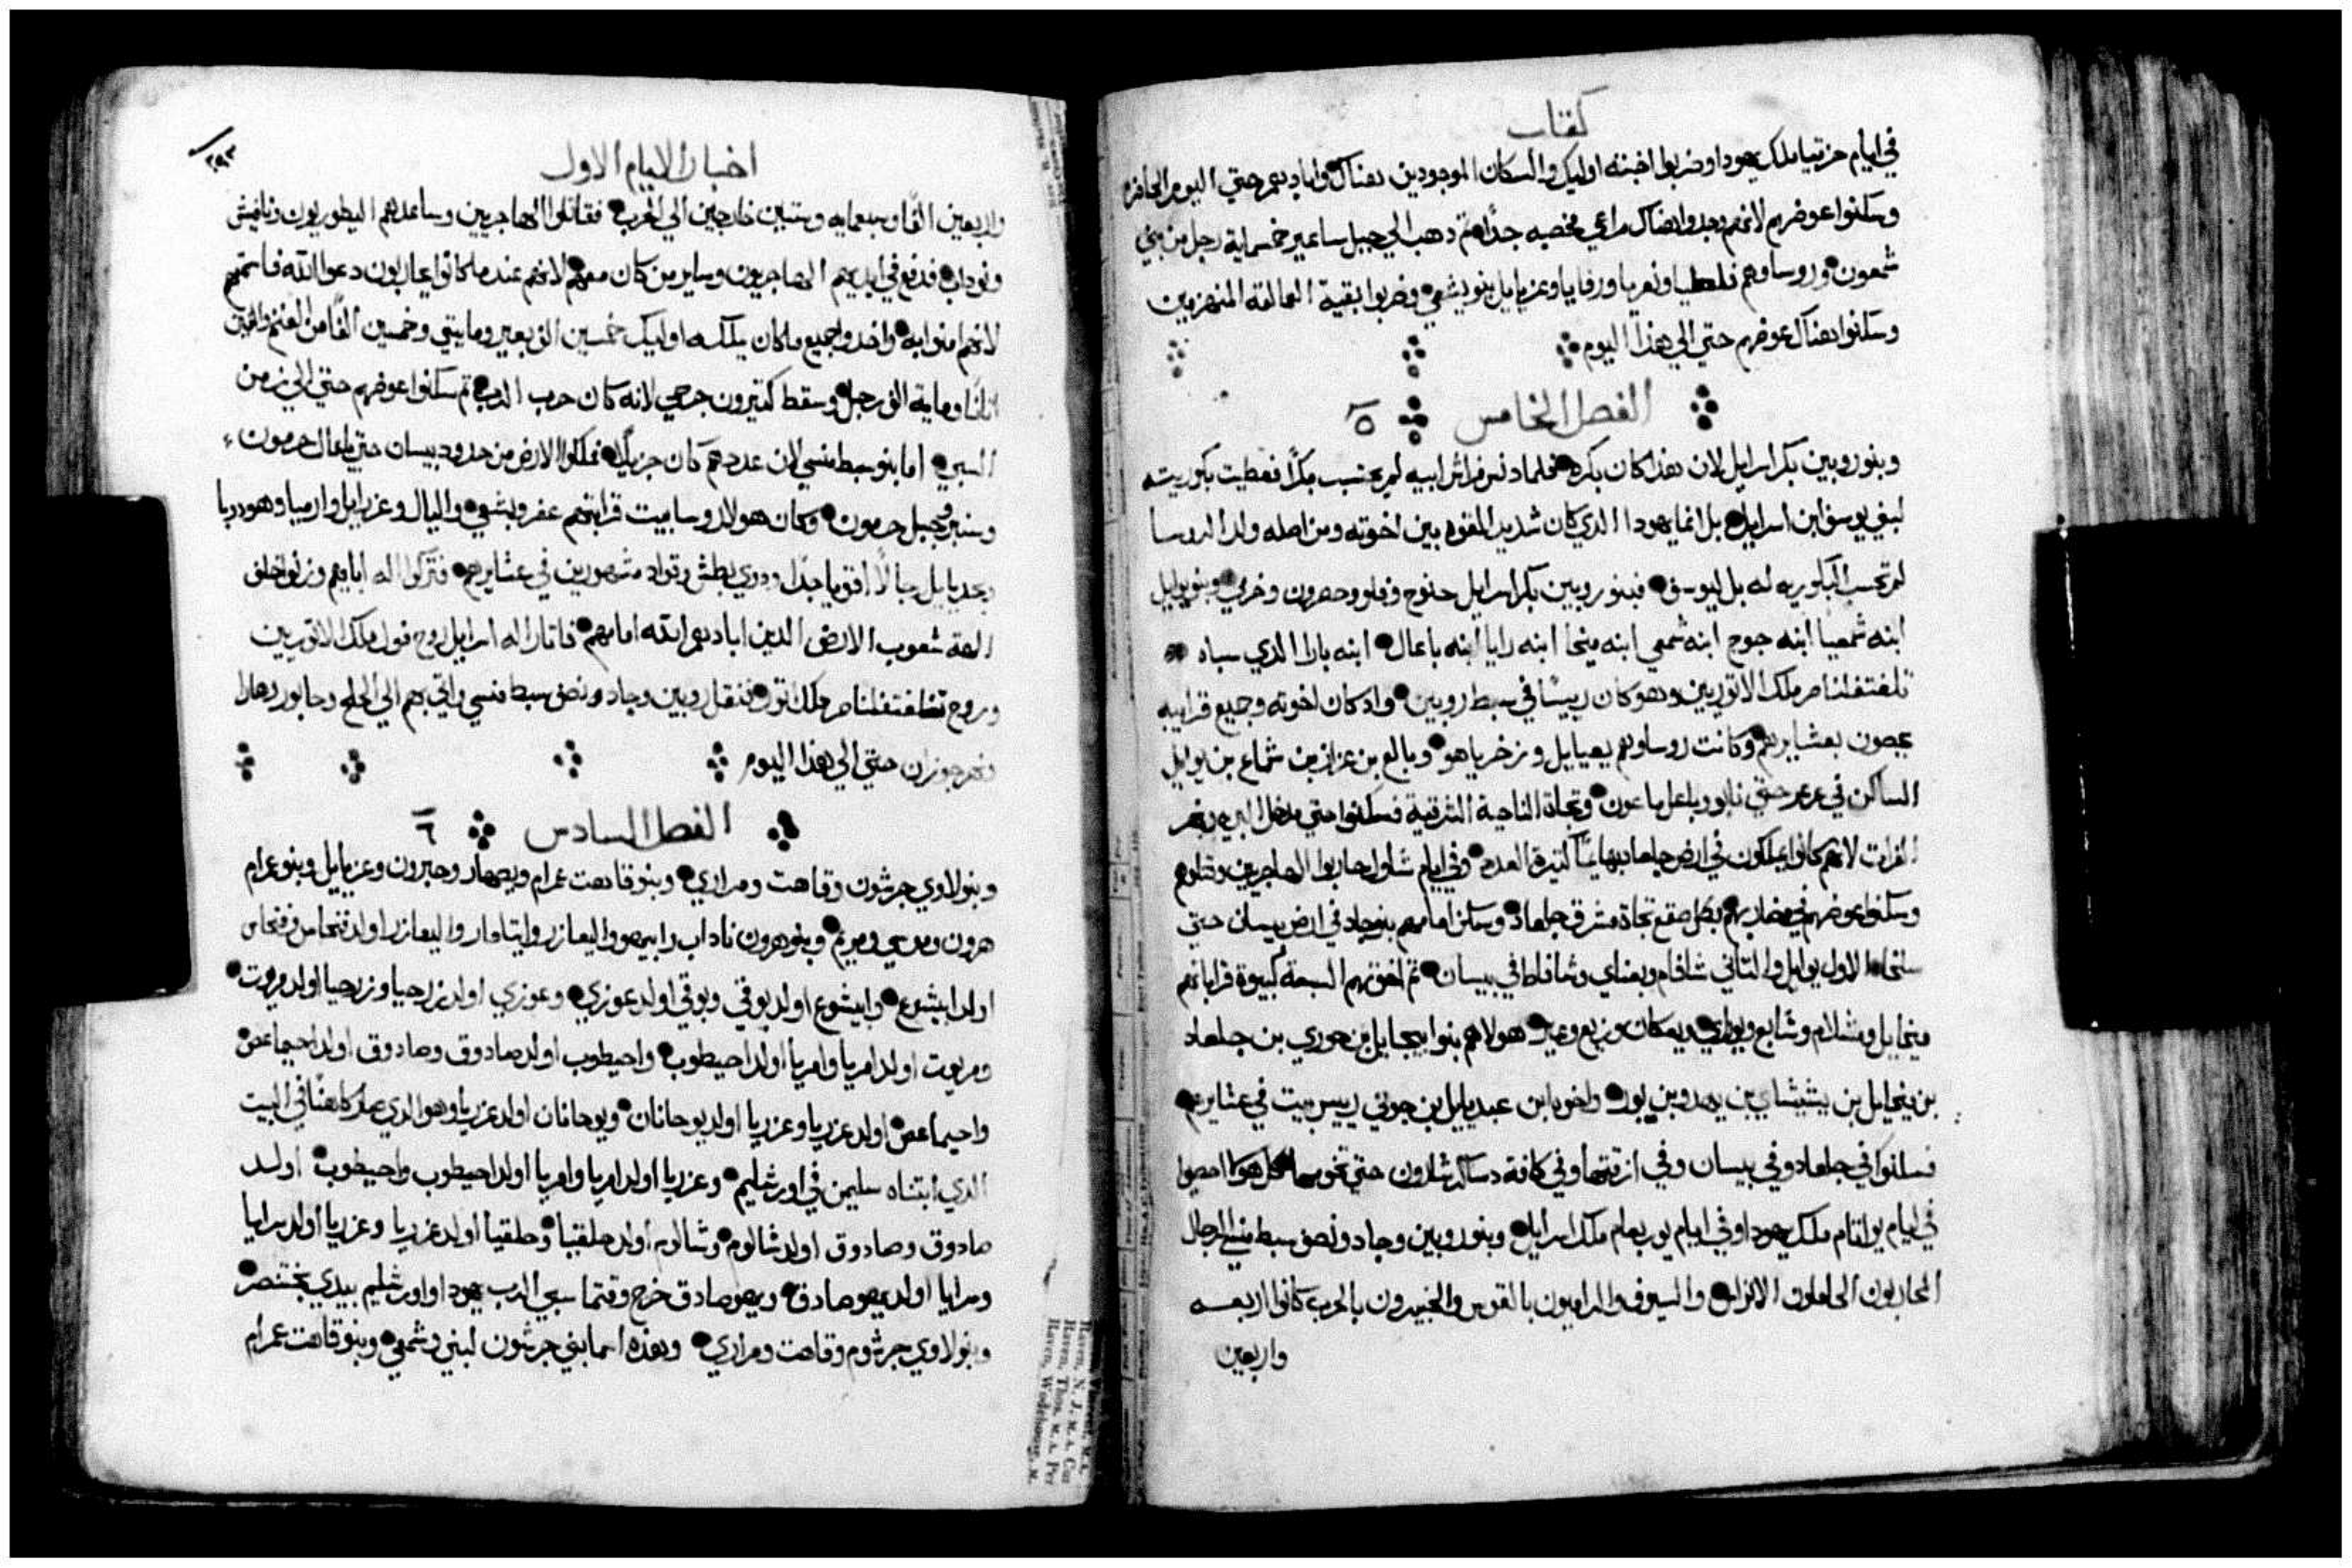 كتاب
في ايام حزقيا ملك يهودا وضربوا اخبيته اوليك والسكان الموجودين هناك وابادوهم حتي اليوم الحاضر
وسكنوا عوضهم لانهم وجدوا هناك مراعي مخصبه جدًا ثم دهب الي جبل ساعير خمسماية رجل من بني
شمعون وروساوهم فلطيا ونعريا ورفايا وعزيايل بنو يشعي وضربوا بقية العمالقة المنهزمين
وسكنوا هناك عوضهم حتي الي هذا اليوم
الفصل الخامس ٥
وبنو روبين بكر اسرايل لان هذا كان بكره فلما دنس فراش ابيه لم يحتسب بكرًا فعطيت بكوريته
لبني يوسف ابن اسرايل بل انما يهودا الدي كان شديد القوه بين اخوته ومن اصله ولد الروسا
لم تحسب البكوريه له بل ليوسف فبنو روبين بكر اسرايل حنوح وفلو وحصرون وخرمي وبنو يوايل
ابنه شمعيا ابنه جوج ابنه شمعي ابنه ميخا ابنه رايا ابنه باعال ابنه بارا الدي سباه
تلغتفلناصر ملك الاتوريين وهو كان رييسًا في سبط روبين واد كان اخوته وجميع قرابيه
يحصون بعشايرهم وكانت روساوهم يعيايل وزخرياهو وبالع بن عزاز بن شماع بن يوايل
الساكن في عرعر حتي نابو وباعل ماعون وتجاة الناحية الشرقية فسكنوا حتي مدخل البريه ونهر
الفرات لانهم كانوا يملكون في ارض جلعاد بهايمًا كثيرة العدد وفي ايام شاول حاربوا الهاجريين وقتلوهم
وسكنوا عوضهم في مضاربهم بكل صقع تجاة مشرق جلعاد وسكن امامهم بنو جاد في ارض بيسان حتي
سلخا الاول يوايل والتاني شافام ويعناي وشافاط في بيسان ثم اخوتهم السبعة كبيوة قراباتهم
ميخايل ومشلام وشابع ويوراي ويعكان وزيع وعبر هولاهم بنوا ابيحايل بن حوري بن جلعاد
بن ميخايل بن يشيشاي بن يهدو بن بوز واخوها بن عبديايل بن جوني رييس بيت في عشايرهم
فسكنوا في جلعاد وفي بيسان وفي ازقتها وفي كافة دساكر شارون حتي تخومها كل هولا احصيوا
في ايام يواتام ملك يهودا وفي ايام يوربعام ملك اسرايل وبنو روبين وجاد ونصف سبط منسي الرجال
المحاربون الحاملون الاتراس والسيوف والراميون بالقوس والخبيرون بالحرب كانوا اربعه
واربعين
٢٩٣
اخبار الايام الاول
واربعين الفًا وسبعمايه وستين خارجين الي الحرب فقاتلوا الهاجريين وساعدهم اليطوريون ونافيش
ونوداب فدفع في ايديهم الهاجريون وساير من كان معهم لانهم عندما كانوا يحاربون دعوا الله فاستمعهم
لانهم امنوا به واخدوا جميع ما كان يملكه اوليك خمسين الف بعير ومايتي وخمسين الفًا من الغنم والفين
اتانًا وماية الف رجل وسقط كتيرون جرحي لانه كان حرب الرب ثم سكنوا عوضهم حتي الي زمن
السبي اما بنو سبط منسي لان عددهم كان جزيلًا فملكوا الارض من حدود بيسان حتي باعال حرمون
وسنير وجبل حرمون وكان هولا روسا بيت قرابتهم عفر ويشعي واليال وعزرايل وارميا وهودويا
ويحديايل رجالًا اقويا جدًا ودوي بطش وقواد مشهورين في عشايرهم فتركوا اله ابايهم وزنوا خلف
الهة شعوب الارض الدين ابادهم الله امامهم فاتار اله اسرايل روح فول ملك الاتوريين
وروح تغلغتفلناصر ملك اتور فنقل روبين وجاد ونصف سبط منسي واتي بهم الي الحلح وحابور وهارا
ونهر جوزان حتي الي هذا اليوم
الفصل السادس ٦
وبنو لاوي جرشون وقاهت ومراري وبنو قاهت عمرام ويصهار وحبرون وعزيايل وبنو عمرام
هرون وموسي ومريم وبنو هرون ناداب وابيهو واليعازر وايتامار واليعازر اولد فنحاس وفنحاس
اولد ابيشوع وابيشوع اولد بوقي وبوقي اولد عوزي وعوزي اولد زرحيا وزرحيا اولد مريوت
ومريوت اولد امريا وامريا اولد احيطوب واحيطوب اولد صادوق وصادوق اولد احيماعص
واحيماعص اولد عزريا وعزريا اولد يوحانان ويوحانان اولد عزريا وهو الدي صار كاهنًا في البيت
الدي ابتناه سليمن في اورشليم وعزريا اولد امريا وامريا اولد احيطوب واحيطوب اولد
صادوق وصادوق اولد شالوم وشالوم اولد حلقيا وحلقيا اولد عزريا وعزريا اولد سرايا
وسرايا اولد يهوصادق ويهوصادق خرج وقتما سبي الرب يهودا واورشليم بيدي بختنصر
وبنو لاوي جرشوم وقاهت ومراري وهذه اسما بني جرشون لبني وشمعي وبنو قاهت عمرام